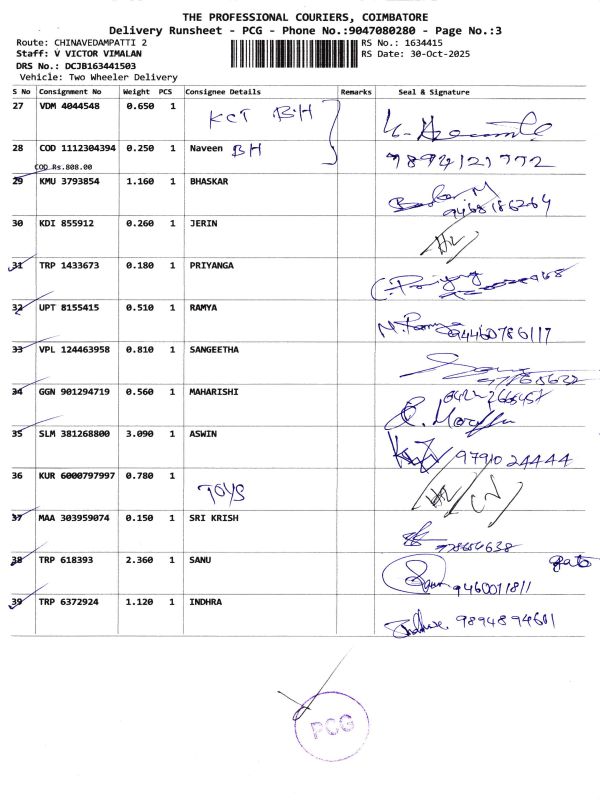 THE PROFESSIONAL COURIERS, COIMBATORE
Delivery Runsheet - PCG - Phone No.:9047080280 - Page No.:3
Route: CHINAVEDAMPATTI 2
RS No.: 1634415
Staff: V VICTOR VIMALAN
RS Date: 30-Oct-2025
DRS No.: DCJB163441503
Vehicle: Two Wheeler Delivery
S No Consignment No Weight PCS Consignee Details Remarks Seal & Signature
27 VDM 4044548 0.650 1 KCT BH
28 COD 1112304394 0.250 1 Naveen BH 9894121772
COD Rs.808.00
29 KMU 3793854 1.160 1 BHASKAR
30 KDI 855912 0.260 1 JERIN
31 TRP 1433673 0.180 1 PRIYANGA
32 UPT 8155415 0.510 1 RAMYA
33 VPL 124463958 0.810 1 SANGEETHA
34 GGN 901294719 0.560 1 MAHARISHI
35 SLM 381268800 3.090 1 ASWIN 9791024444
36 KUR 6000797997 0.780 1 TOYS
37 MAA 303959074 0.150 1 SRI KRISH
38 TRP 618393 2.360 1 SANU 9460011811
39 TRP 6372924 1.120 1 INDHRA 9894894601
PCG